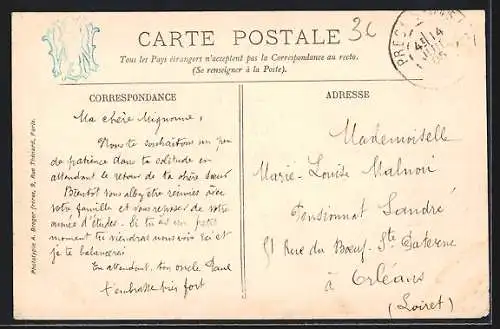 CARTE POSTALE
36
Tous les Pays étrangers n'acceptent pas la Correspondance au recto.
(Se renseigner à la Poste).
CORRESPONDANCE
Ma chère Mignonne,
Nous te souhaitons un peu
de patience dans ta solitude en
attendant le retour de ta chère sœur
Bientôt vous allez être réunies avec
votre famille et vous reposer de votre
année d'études. Si tu as un petit
moment tu viendras nous voir ici et
je te balancerai
En attendant, ton oncle Paul
t'embrasse très fort
ADRESSE
Mademoiselle
Marie-Louise
Pensionnat
51 Rue du Bœuf-Ste Paterne
à Orléans
(Loiret)
Phototypie A. Breger frères, 9, Rue Thénard, Paris.